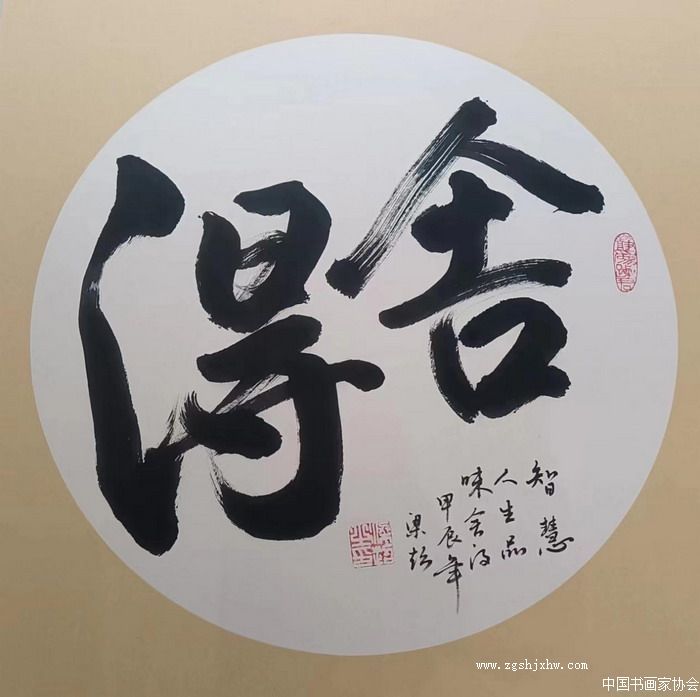 舍得
智慧
人生品
味舍得
甲辰年
梁
www.zgshjxhw.com
中国书画家协会